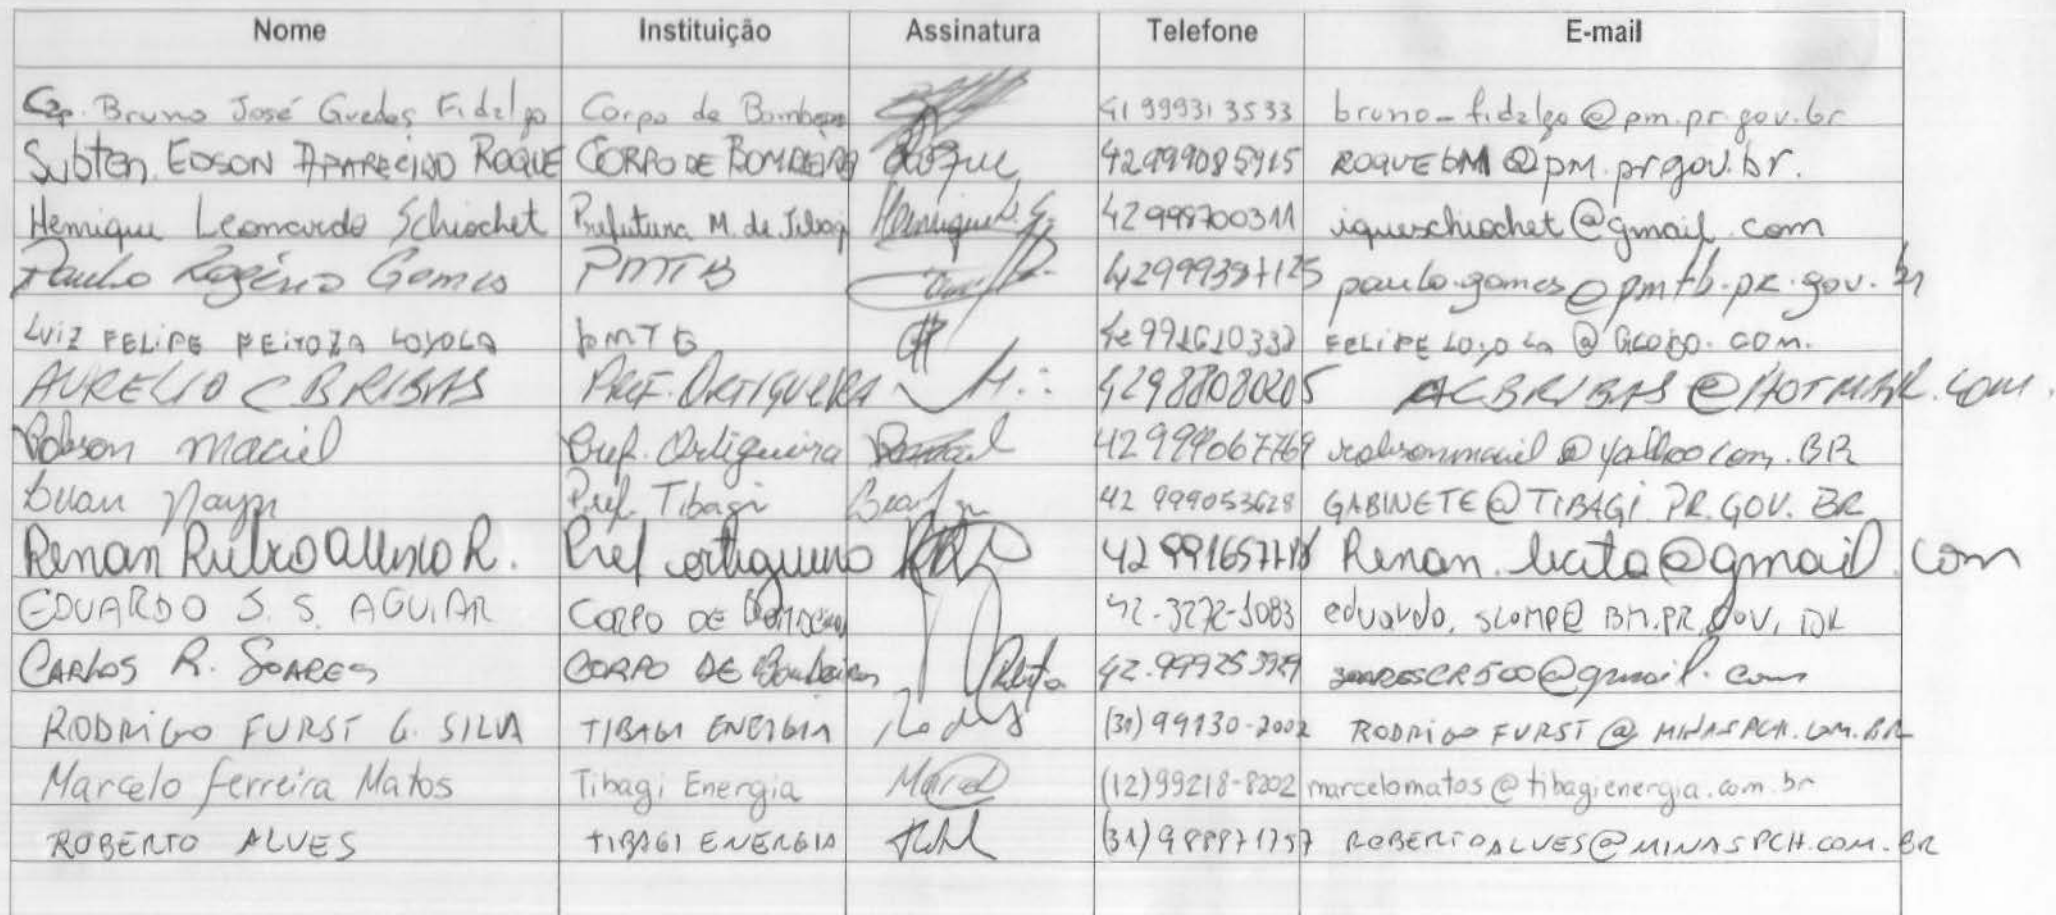 Nome Instituição Assinatura Telefone E-mail
Cap. Bruno José Guedes Fidalgo Corpo de Bombeiros 41 99931 3533 bruno-fidalgo@pm.pr.gov.br
Subten. EDSON APARECIDO ROQUE CORPO DE BOMBEIROS Roque 42999085915 ROQUEBM@pm.pr.gov.br.
Henrique Leonardo Schiochet Prefeitura M. de Tibagi Henrique L. S. 42998700311 iqueschiochet@gmail.com
Paulo Rogério Gomes PMTB 42999397125 paulo.gomes@pmtb.pr.gov.br
LUIZ FELIPE FEITOZA LOYOLA PMTB FELIPELOYOLA@GLOBO.COM.
AURELIO C B RIBAS PREF. ORTIGUEIRA 42988080205 ACBRIBAS@HOTMAIL.COM.
Robson Maciel Pref. Ortigueira 42999067769 robsonmaciel@yahoo.com.BR
Luan Pref. Tibagi 42 999053628 GABINETE@TIBAGI.PR.GOV.BR
Renan R. Pref ortigueira Renan. @gmail.com
EDUARDO S. S. AGUIAR CORPO DE Bombeiros 42-3272-1083 eduardo.slomp@BM.PR.GOV.BR
CARLOS R. SOARES CORPO DE Bombeiros 42.999253929 soaresCR500@gmail.com
RODRIGO FURST G. SILVA TIBAGI ENERGIA (31) 99130-2002 RODRIGO FURST@MINASPCH.COM.BR
Marcelo Ferreira Matos Tibagi Energia Marcelo (12)99218-8202 marcelomatos@tibagienergia.com.br
ROBERTO ALVES TIBAGI ENERGIA (31) 988871757 ROBERTOALVES@MINASPCH.COM.BR